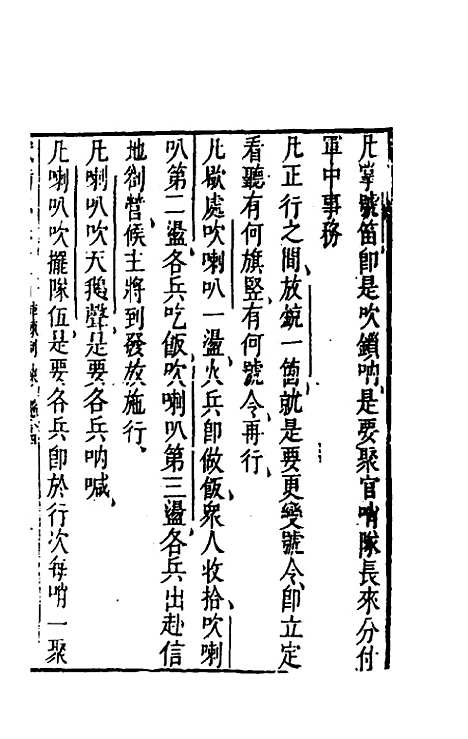 凡掌號笛卽是吹鎖吶是要聚官哨隊長來分付
軍中事務
凡正行之間放銃一箇就是要更變號令卽立定
看聽有何旗竪有何號令再行
凡歇處吹喇叭一盪火兵卽做飯衆人收拾吹喇
叭第二盪各兵吃飯吹喇叭第三盪各兵出赴信
地劄營候主將到發放施行
凡喇叭吹天鵝聲是要各兵吶喊
凡喇叭吹擺隊伍是要各兵卽於行次每哨一聚